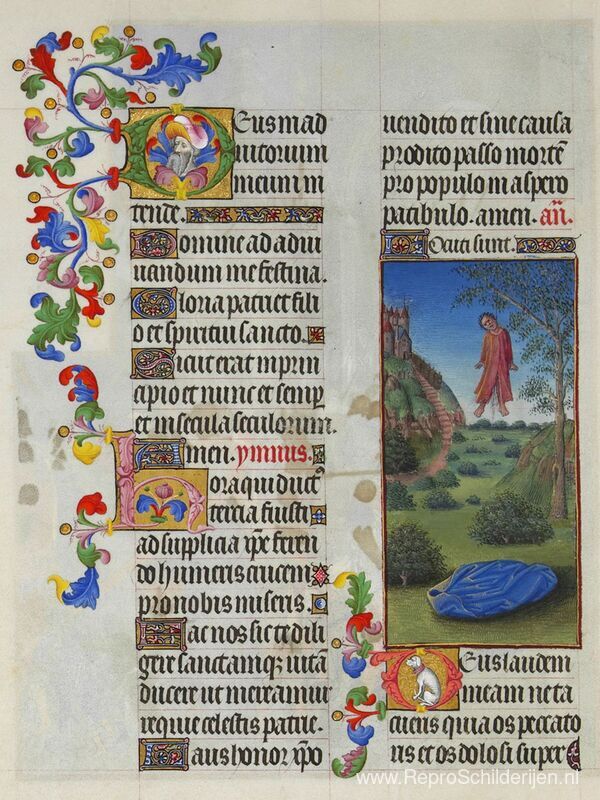 Eus in ad
iutorium
meum in
tende.
Domine ad adiu
uandum me festina.
Gloria patri et fili
o et spiritui sancto.
Sicut erat in prin
cipio et nunc et semp
et in secula seculorum.
Amen. ymnus.
Hora qui duct
tercia fuisti
ad supplicia xpe feren
do humeris crucem
pro nobis miseris.
Fac nos sic te dili
gere sanctamq; uitā
ducere ut mereamur
requie celestis patrie.
Laus honor xpo
uendito et sine causa
prodito passo mortē
pro populo in aspero
patibulo. amen. añ.
Pacati sunt.
Deus laudem
meam ne ta
cueris quia os peccato
ris et os dolosi super
www.ReproSchilderijen.nl